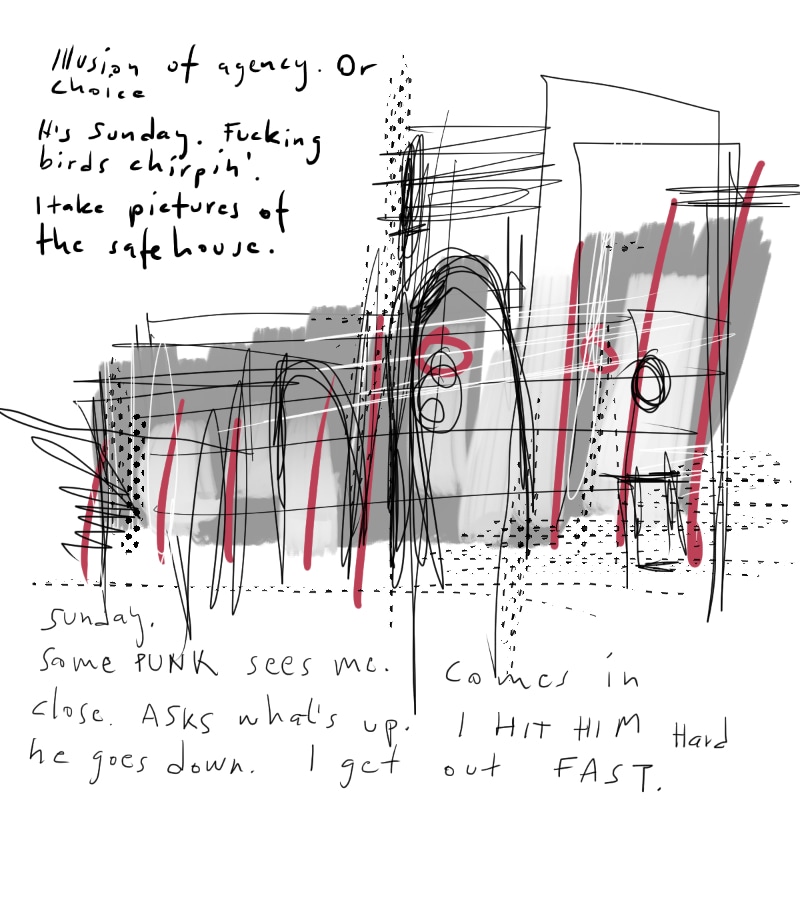 Illusion of agency. Or
choice
It's Sunday. Fucking
birds chirpin'.
I take pictures of
the safehouse.
Sunday.
Some PUNK sees me. Comes in
close. ASKS what's up. I HIT HIM Hard
he goes down. I get out FAST.